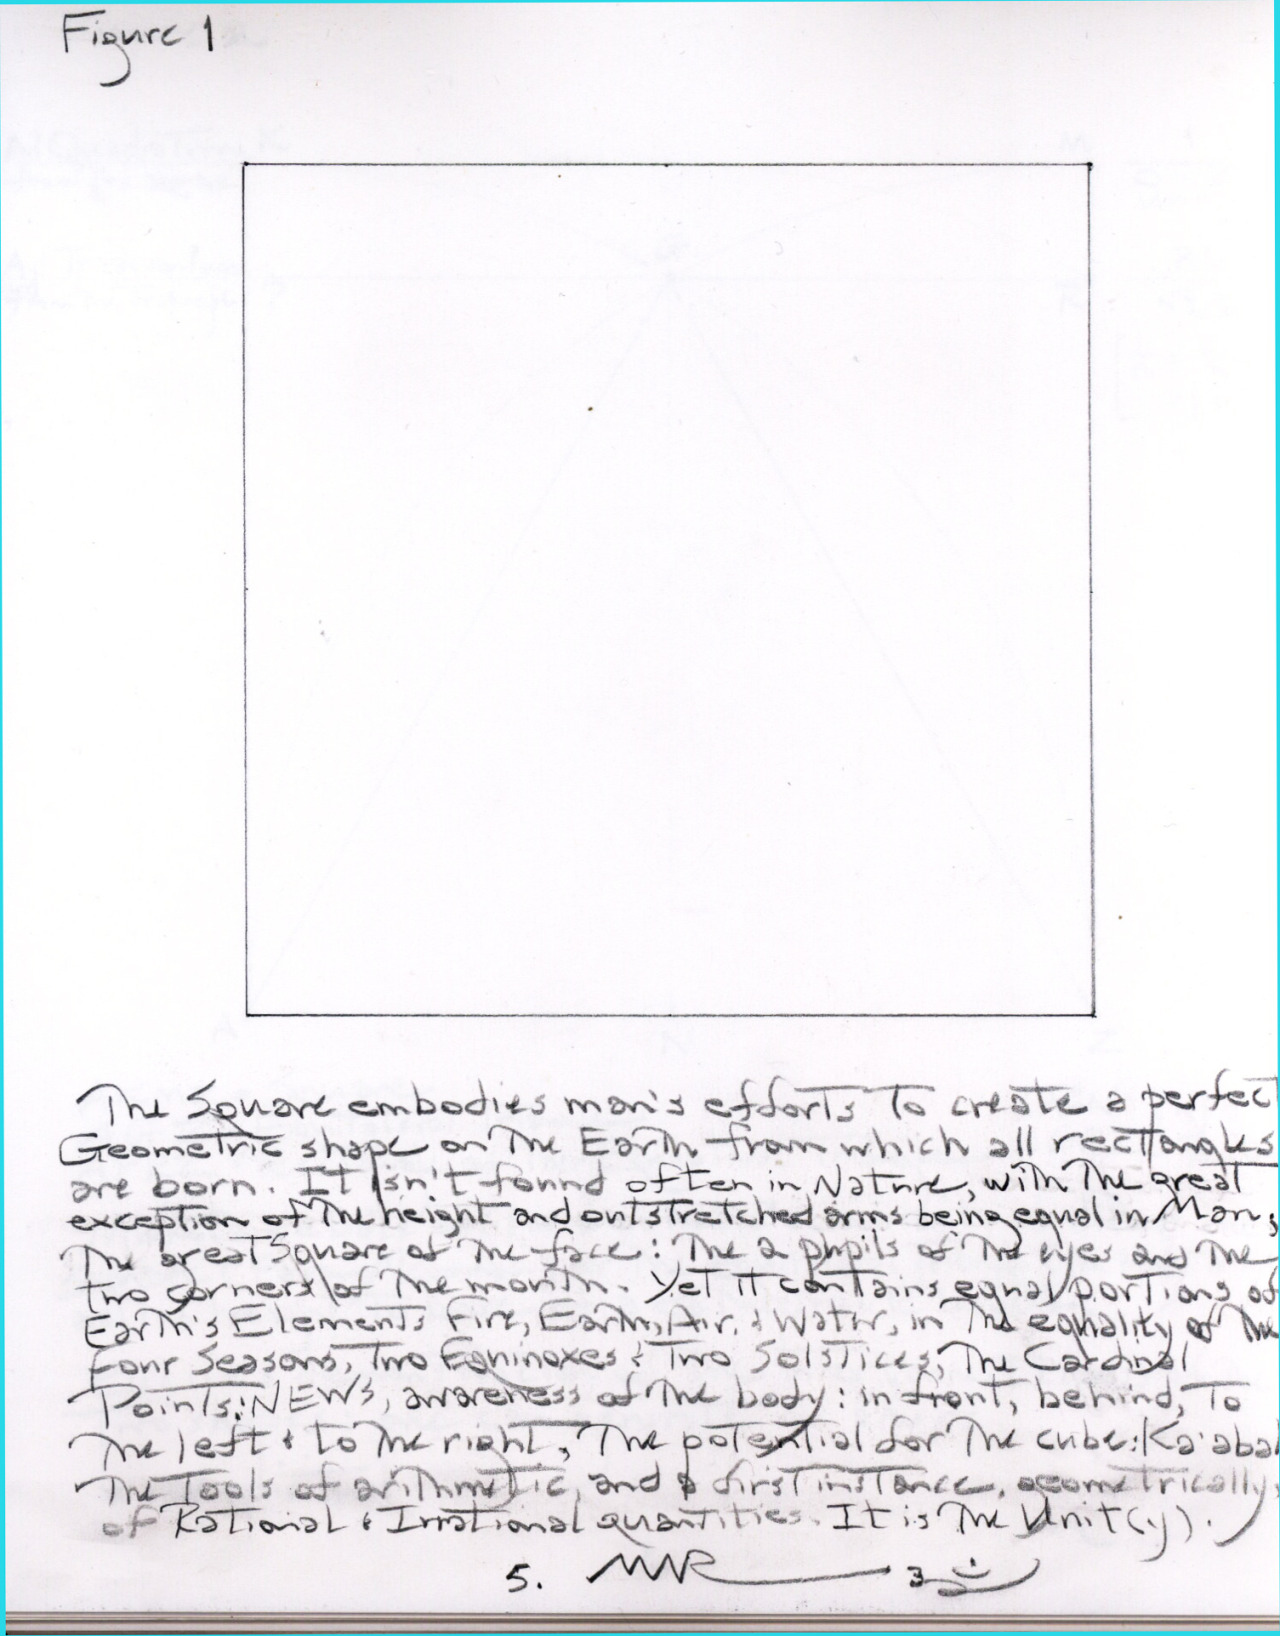 Figure 1
The Square embodies man's efforts to create a perfect
Geometric shape on the Earth from which all recttangles
are born. It isn't found often in Nature, with the great
exception of the height and outstretched arms being equal in Man;
The great Square of the face: The 2 pupils of the eyes and the
two corners of the mouth. Yet it contains equal portions of
Earth's Elements Fire, Earth, Air, & Water, in the equality of the
four Seasons, Two Equinoxes & Two Solstices, The Cardinal
Points: NEWS, awareness of the body: in front, behind, To
the left & to the right, The potential for the cube: Ka'abah
The Tools of arithmetic, and a first instance, geometrically,
of Rational & Irrational quantities. It is The Unit(y).
5. MWR